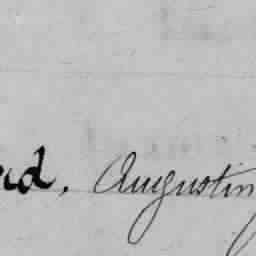 ud, Augustin